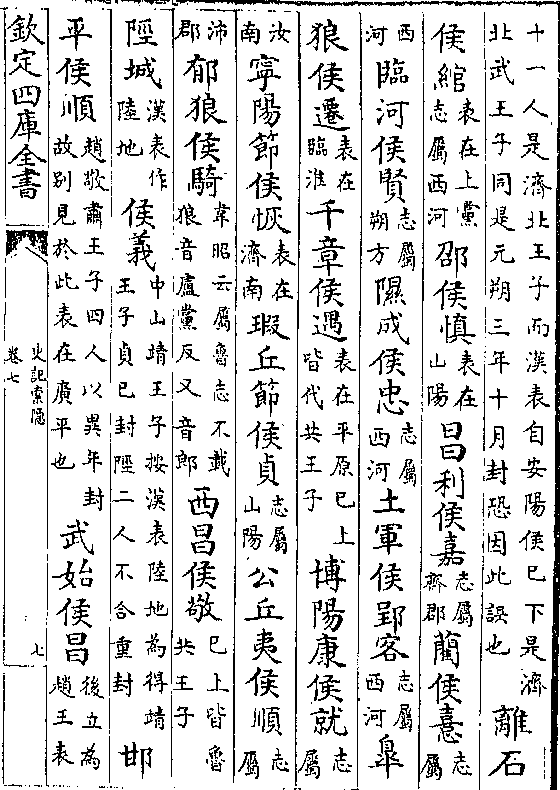 十一人是濟北王子而漢表自安陽侯已下是濟北武王子同是元朔三年十月封恐因此誤也離石
侯綰表在上黨志屬西河邵侯慎表在山陽昌利侯嘉志屬齊郡藺侯憙志屬
西河臨河侯賢志屬朔方隰成侯忠志屬西河土軍侯郢客志屬西河臯
狼侯遷表在臨淮千章侯遇表在平原已上皆代共王子博陽康侯就志屬
汝南寧陽節侯恢表在濟南瑕丘節侯貞志屬山陽公丘夷侯順志屬
沛郡郁狼侯騎韋昭云屬魯志不載狼音盧黨反又音郎西昌侯敬已上皆魯共王子
陘城漢表作陸地侯義中山靖王子按漢表陸地為得靖王子貞已封陘二人不合重封邯
平侯順趙敬肅王子四人以異年封故別見於此表在廣平也武始侯昌後立為趙王表
欽定四庫全書
史記索隱
卷七
七